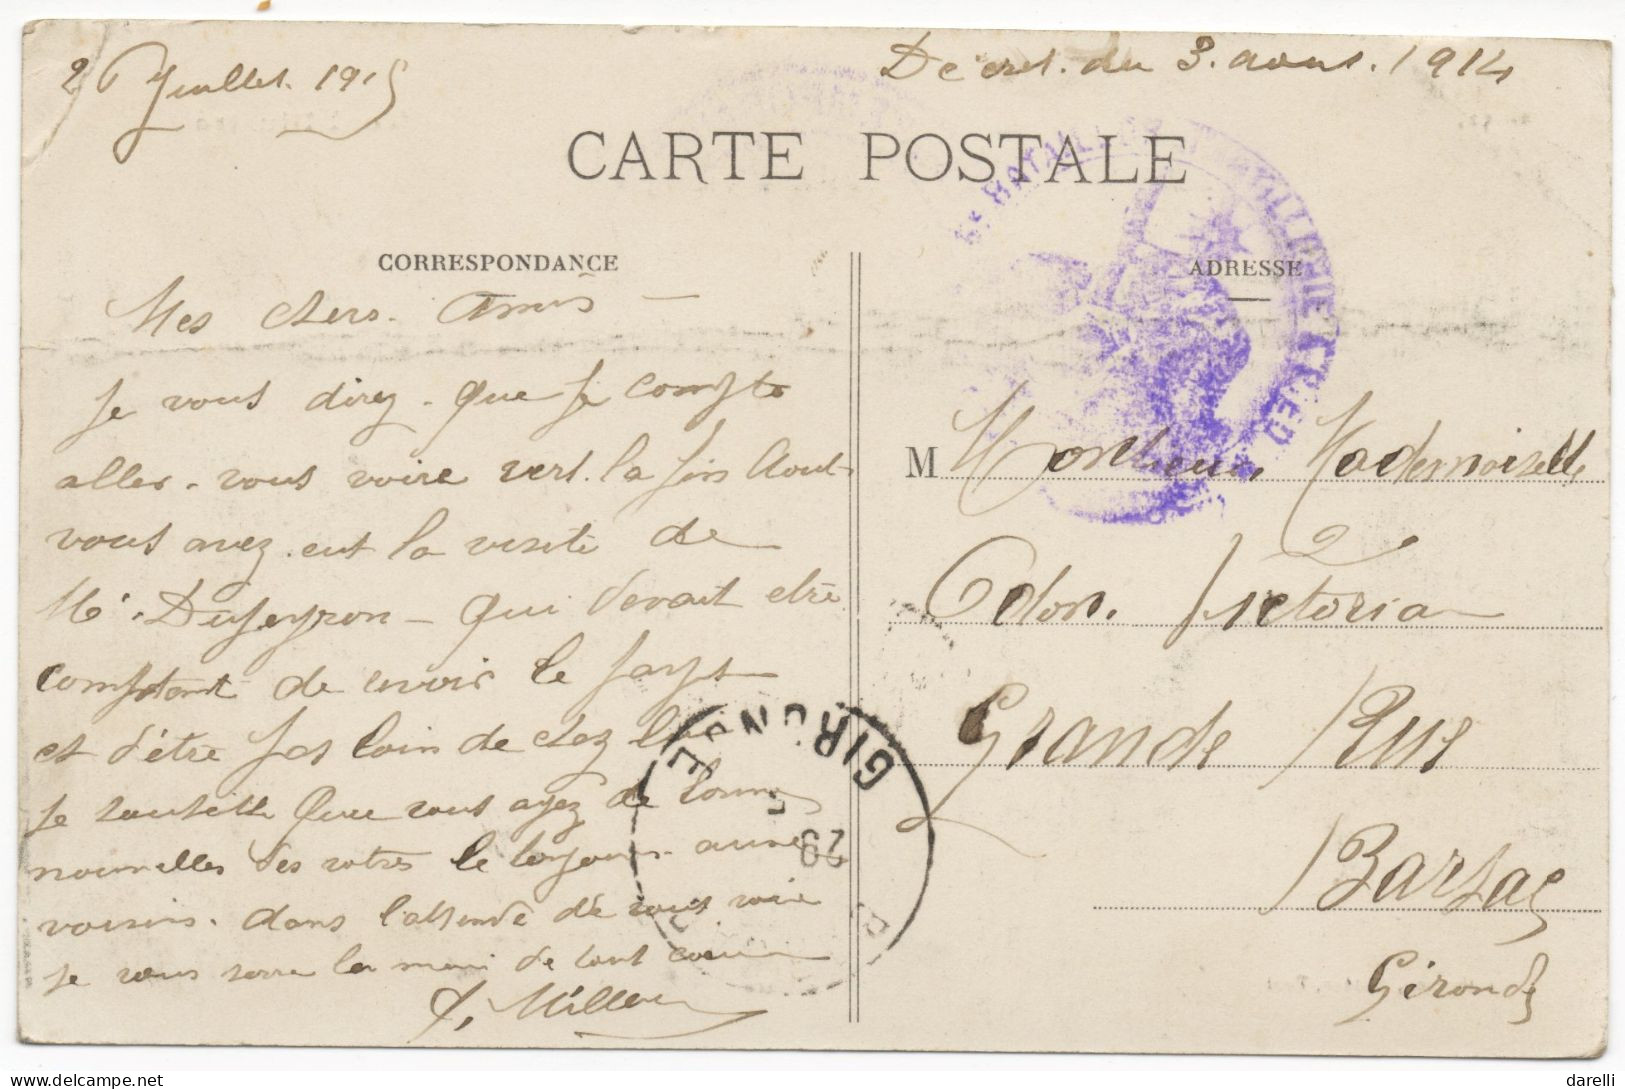 2 Juillet. 1915
Decret. du 3. aout. 1914
CARTE POSTALE
BATAILLON
CORRESPONDANCE
ADRESSE
Mes chers. Amis –
Je vous direz. que je compte
aller. vous voire vers. la fin Aout
vous avez. eut la visite de
Mr. Dupeyron – qui devait etre
comptant de revoir le pays
et d'être pas loin de chez lui
Je souhette que vous ayez de bonnes
nouvelles des votres le toujours
voisins. dans l'attende de vous voire
je vous serre la main de tout coeur
M Monsieur, Mademoiselle
Odon. Victoria
Grande Rue
Barsac
Gironde
GIRONDE
29